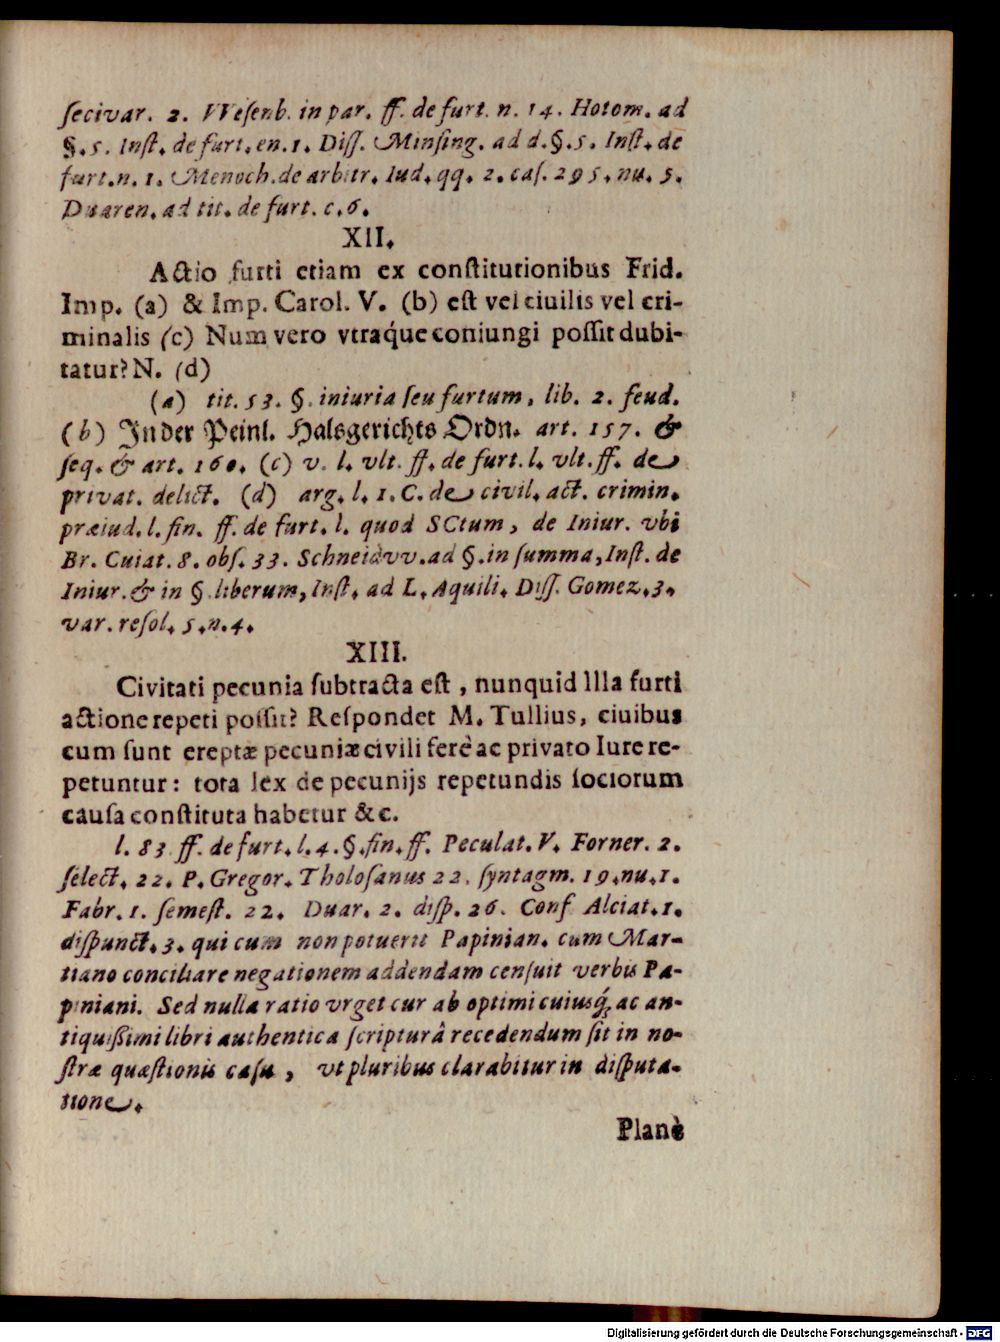 ſecivar. 2. VVeſenb. in par. ff. de furt. n. 14. Hotom. ad
§. 5. Inſt. de furt. en. 1. Diſſ. Minſing. ad d. §. 5. Inſt. de
furt. n. 1. Menoch. de arbitr. Iud. qq. 2. caſ. 295. nu. 5.
Duaren. ad tit. de furt. c. 6.
XII.
Actio furti etiam ex conſtitutionibus Frid.
Imp. (a) & Imp. Carol. V. (b) eſt vel ciuilis vel cri-
minalis (c) Num vero vtraq́ue coniungi poſſit dubi-
tatur? N. (d)
(a) tit. 53. §. iniuria ſeu furtum, lib. 2. feud.
(b) In der Peinl. Halsgerichts Ordn. art. 157. &
ſeq. & art. 160. (c) v. l. vlt. ff. de furt. l. vlt. ff. de
privat. delict. (d) arg. l. 1. C. de civil. act. crimin.
præiud. l. fin. ff. de furt. l. quod SCtum, de Iniur. vbi
Br. Cuiat. 8. obſ. 33. Schneidvv. ad §. in ſumma, Inſt. de
Iniur. & in §. liberum, Inſt. ad L. Aquili. Diſſ. Gomez. 3.
var. reſol. 5. n. 4.
XIII.
Civitati pecunia ſubtracta eſt, nunquid Illa furti
actione repeti poſſit? Reſpondet M. Tullius, ciuibus
cum ſunt ereptæ pecuniæ civili ferè ac privato Iure re-
petuntur: tota lex de pecunijs repetundis ſociorum
cauſa conſtituta habetur &c.
l. 83 ff. de furt. l. 4. §. fin. ff. Peculat. V. Forner. 2.
ſelect. 22. P. Gregor. Tholoſanus 22. ſyntagm. 19. nu. 1.
Fabr. 1. ſemeſt. 22. Duar. 2. diſp. 26. Conf Alciat. 1.
diſpunct. 3. qui cum non potuerit Papinian. cum Mar-
tiano conciliare negationem addendam cenſuit verbis Pa-
piniani. Sed nulla ratio vrget cur ab optimi cuiusq́; ac an-
tiquiſſimi libri authentica ſcripturâ recedendum ſit in no-
ſtræ quæſtionis caſu, vt pluribus clarabitur in diſputa-
tione.
Planè
Digitalisierung gefördert durch die Deutsche Forschungsgemeinschaft - DFG